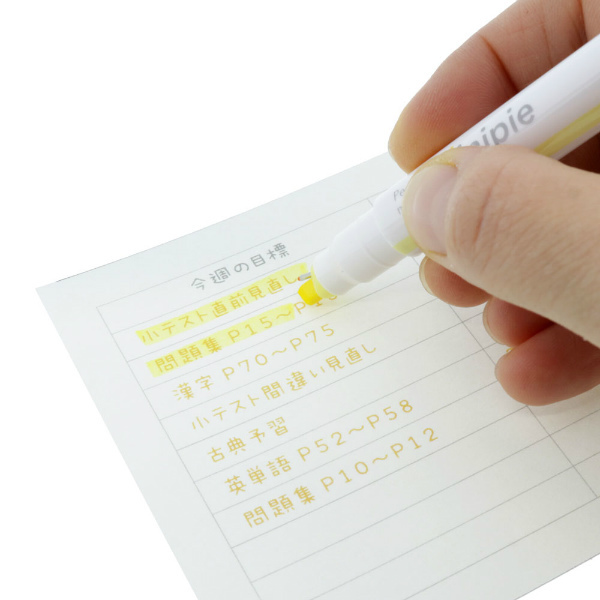 今週の目標
小テスト直前見直し
問題集 P15〜P
漢字 P70〜P75
小テスト間違い見直し
古典予習
英単語 P52〜P58
問題集 P10〜P12